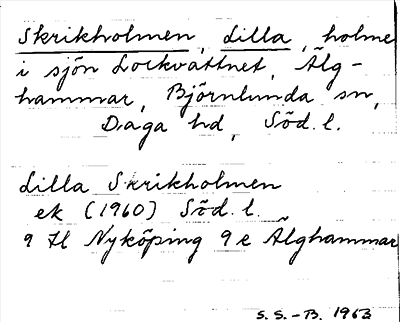 Skrikholmen, Lilla, holme
i sjön Lockvattnet, Älg-
hammar, Björnlunda sn,
Daga hd, Söd. l.
Lilla Skrikholmen
ek (1960) Söd. l.
9 H Nyköping 9 e Älghammar
S. S.-B. 1963